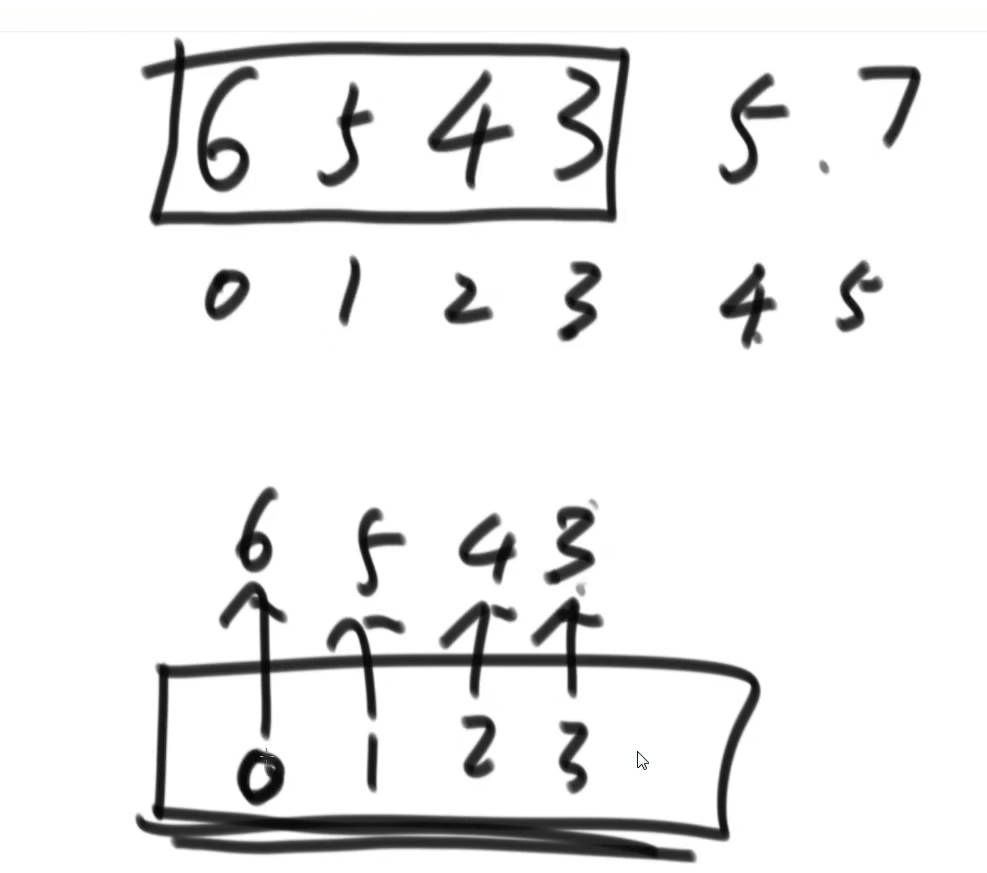 6 5 4 3 5 . 7
0 1 2 3 4 5
6 5 4 3
0 1 2 3